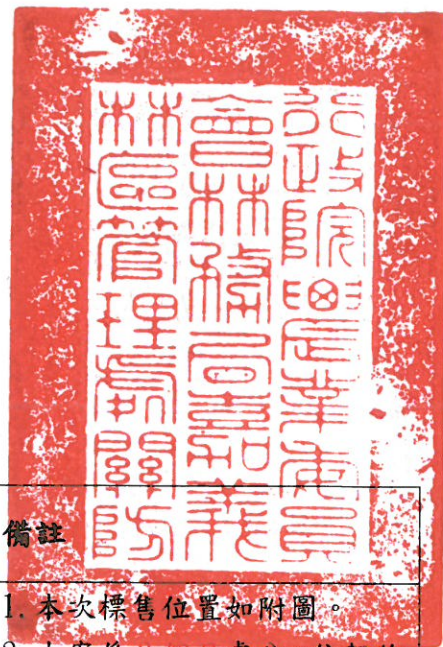 行政院農業委員
會林務局嘉義
林區管理處關防
備註
1. 本次標售位置如附圖。
2. 本案係